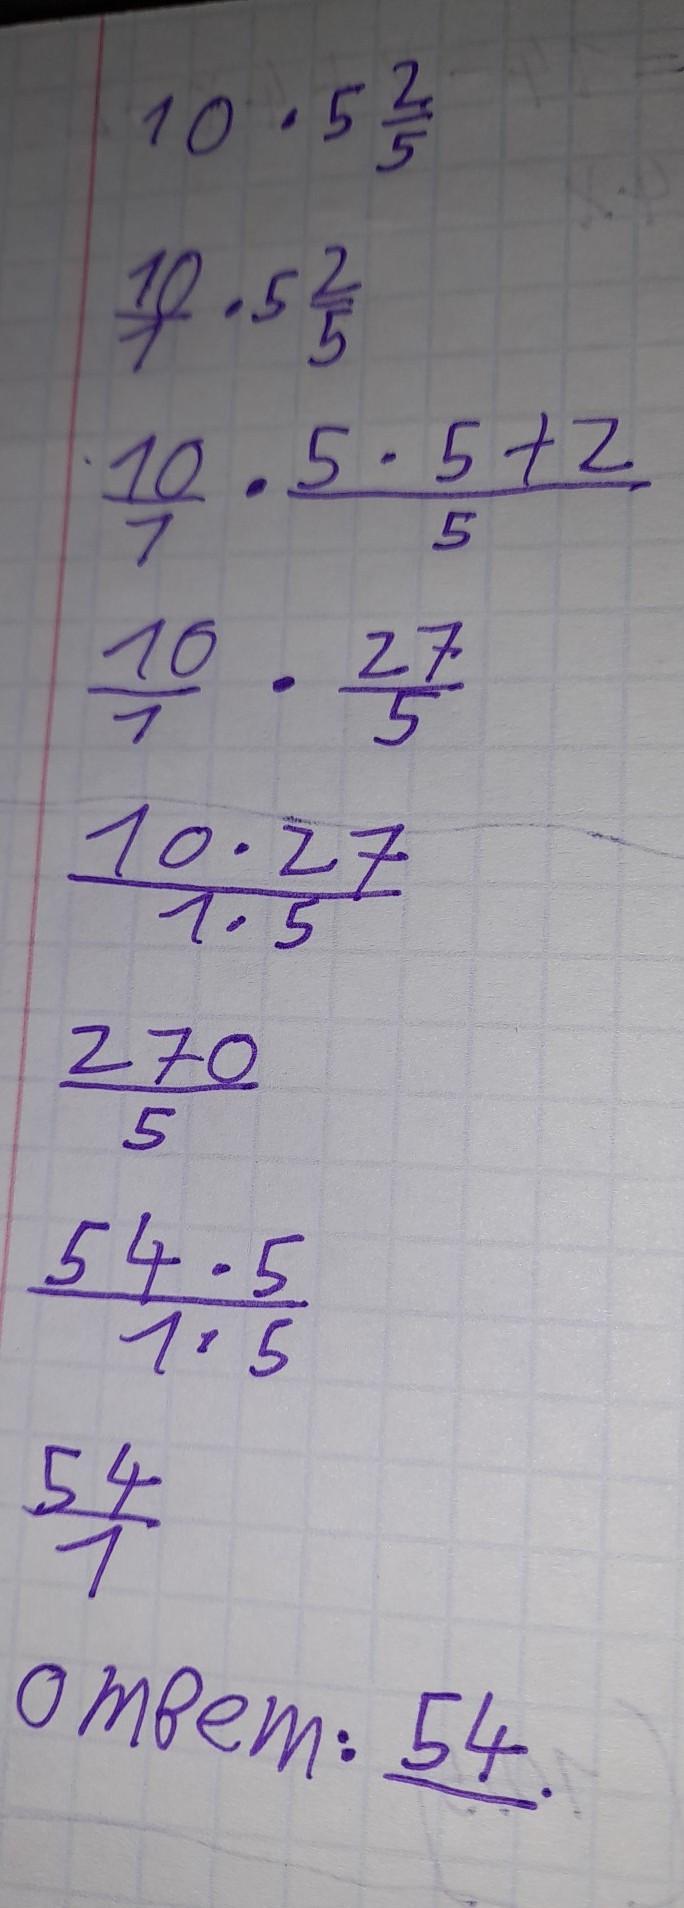 10 · 5 2/5
10/1 · 5 2/5
10/1 · (5 · 5 + 2)/5
10/1 · 27/5
(10 · 27)/(1 · 5)
270/5
(54 · 5)/(1 · 5)
54/1
ответ: 54.